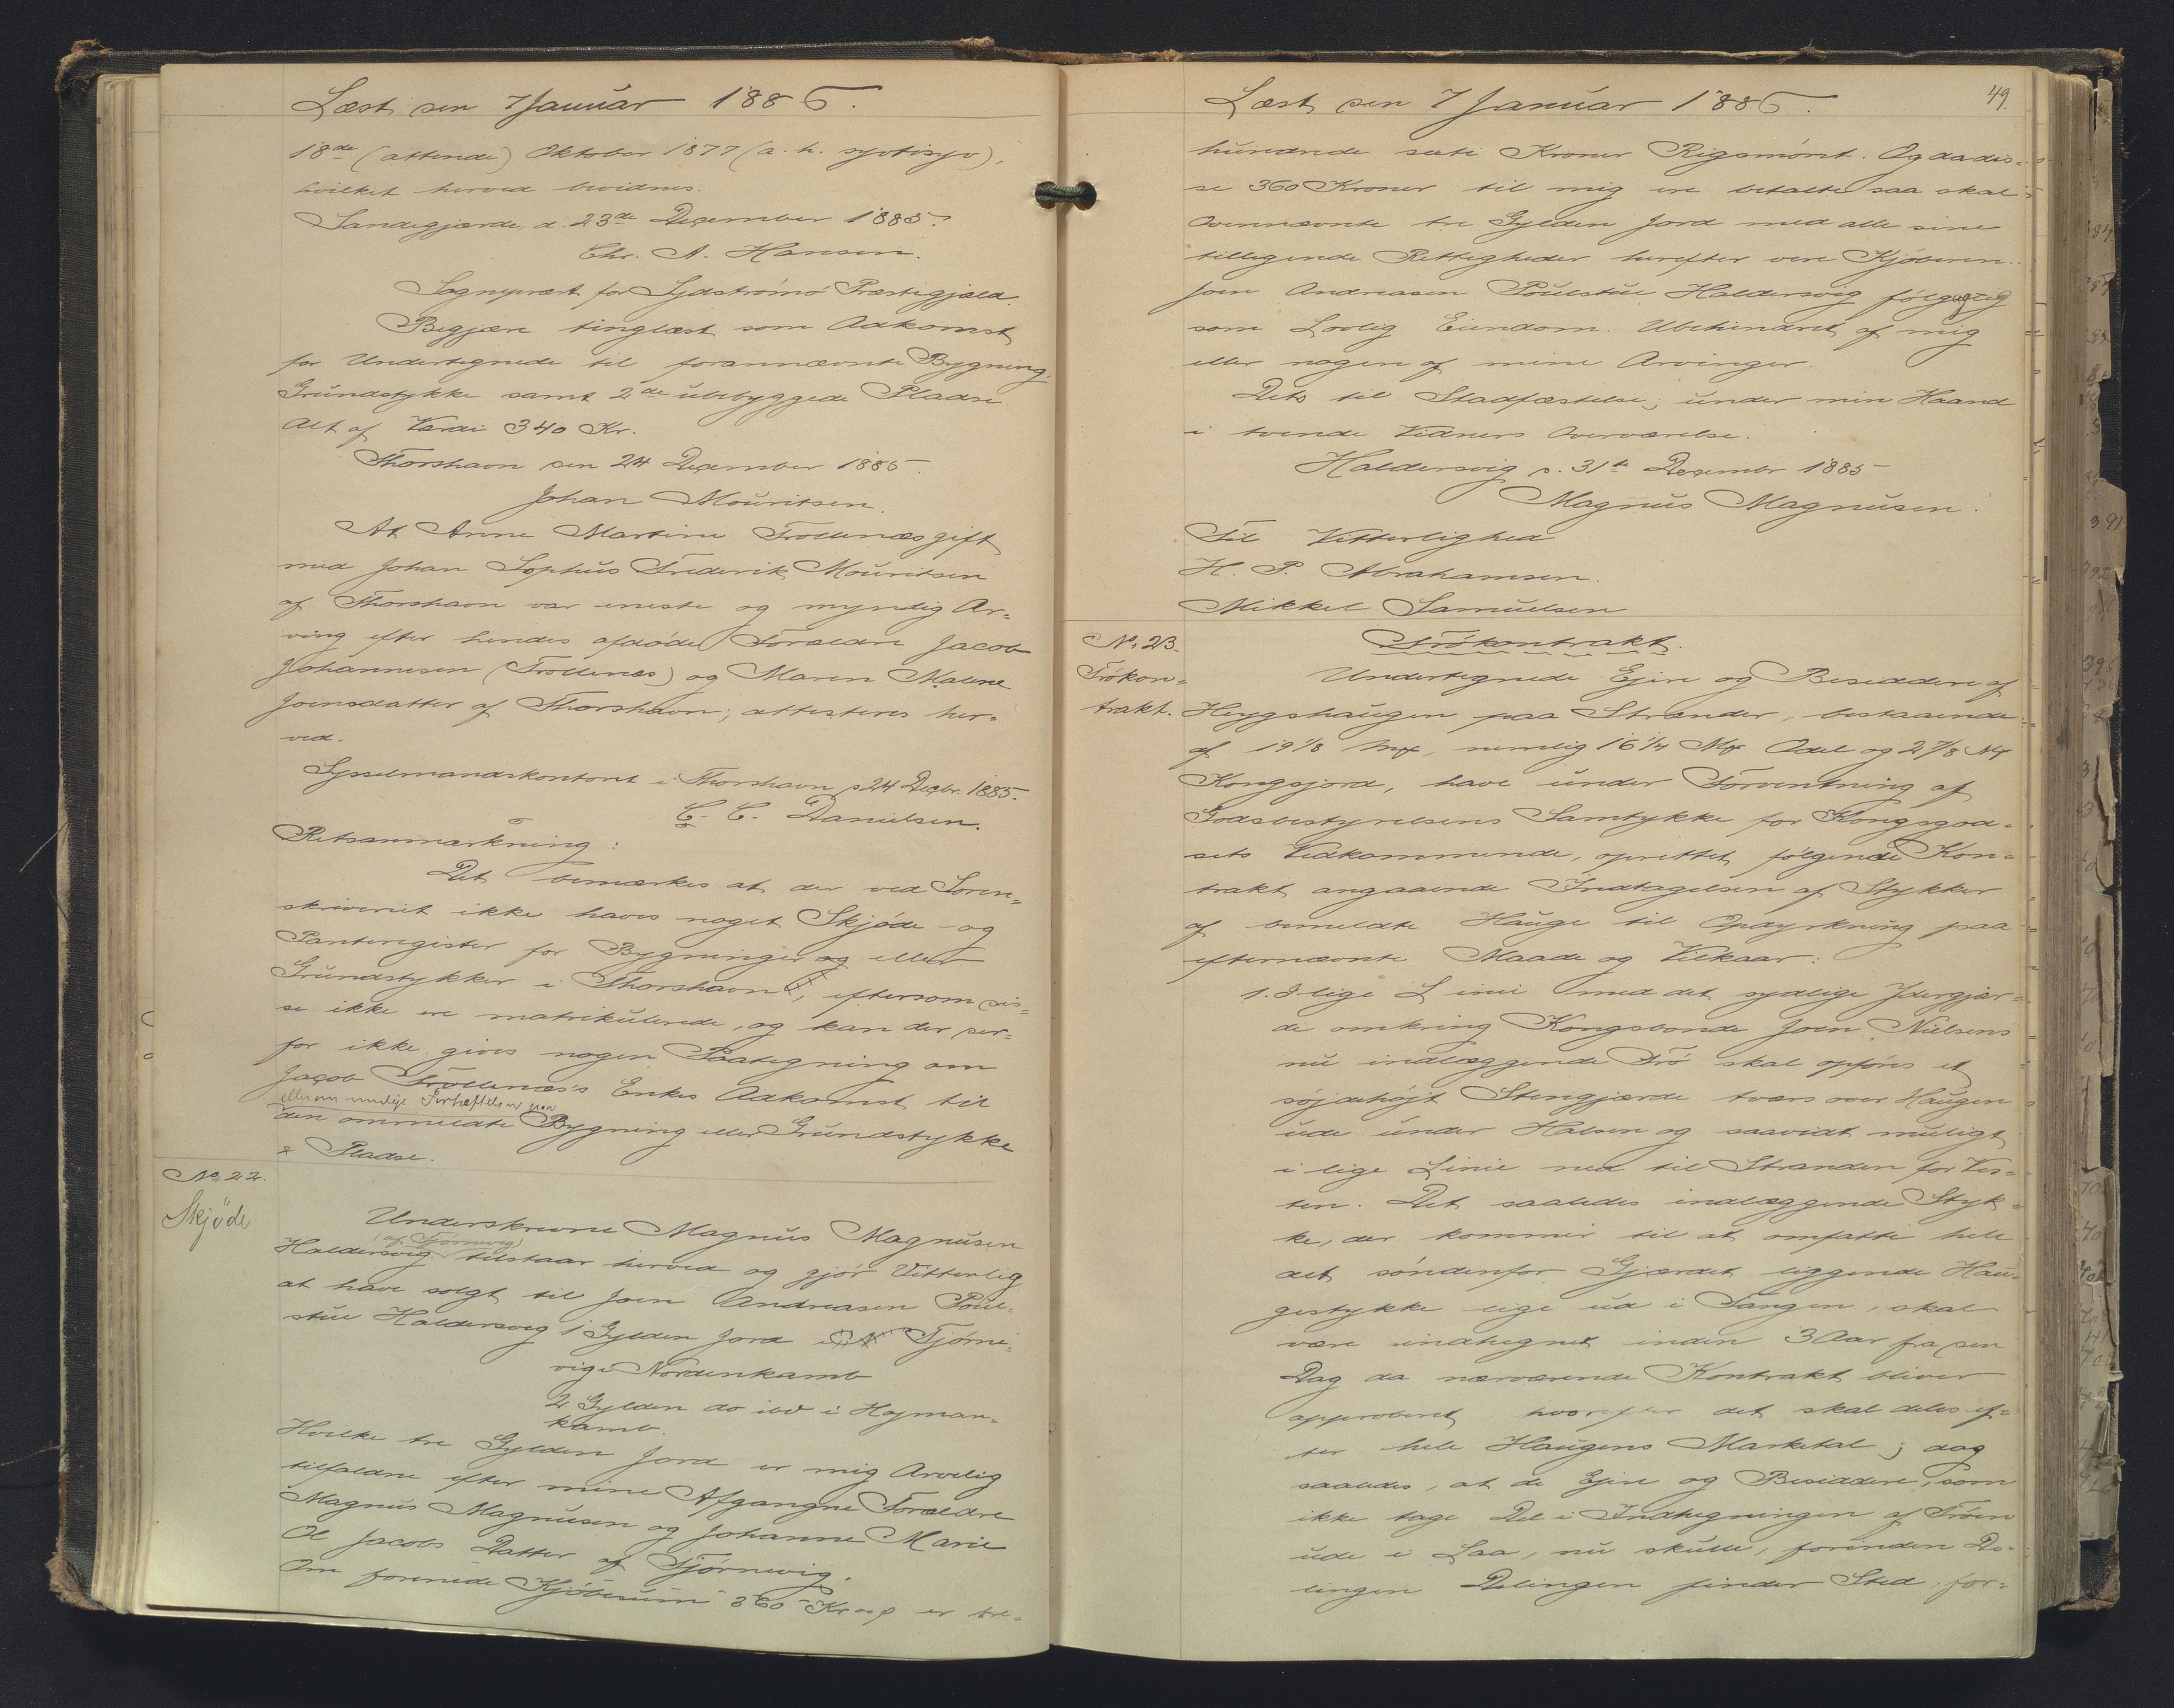 Læst den 7 Januar 1886.
18de (attende) Oktober 1877 (a. h. syvtisyv),
hvilket herved bevidnes.
Sandegjærde, d. 23de December 1885.
Chr. A. Hansen.
Sognepræst for Sydstrømø Præstegjæld.
Begjæres tinglæst som Adkomst
for Undertegnede til forannævnte Bygning,
Grundstykke samt 2de ubebyggede Pladse.
Alt af Værdi 340 Kr.
Thorshavn den 24 December 1885.
Johan Mouritsen.
At Anne Martine Trollenæs gift
med Johan Sophus Frederik Mouritsen
af Thorshavn var eneste og myndig Ar=
ving efter hendes afdøde Forældre Jacob
Johannesen (Trollenæs) og Maren Malene
Joensdatter af Thorshavn; attesteres her=
ved.
Sysselmandskontoret i Thorshavn d 24 Decbr. 1885.
C. C. Danielsen.
Retsanmærkning:
Det bemærkes at der ved Soren=
skriveriet ikke haves noget Skjøde- og
Panteregister for Bygninger og eller
Grundstykker i Thorshavn, eftersom dis=
se ikke ere matrikulerede, og kan der der=
for ikke gives nogen Paategning om
Jacob Trollenæs's Enkes Adkomst til
eller om mulige Perhæftelser paa
den ommeldte Bygning eller Grundstykke
& Pladse.
No. 22.
Skjøde
Underskrevne Magnus Magnusen
(af Tjørnevig)
Haldersvig tilstaar herved og gjør Vitterlig
at have solgt til Joen Andreasen Poul=
stue Haldersvig 1 Gylden Jord i Tjørne=
vig i Nordenkamb
2 Gylden do ibd i Hojman=
kamb.
Hvilke tre Gylden Jord er mig Arvelig
tilfaldne efter mine Afgangne Forældre
Magnus Magnusen og Johanne Marie
Ol Jacobs Datter af Tjørnevig.
Om forenede Kjøbesum 360 Kr er tre=
49.
Læst den 7 Januar 1886.
hundrede seti Kroner Rigsmønt. Og da dis=
se 360 Kroner til mig ere betalte saa skal
Ovennævnte tre Gylden Jord med alle sine
tillegende Rettigheder herefter være Kjøberen
Joen Andreasen Poulstue Haldersvig følgagtig
som Lovlig Eiendom. Ubehindret af mig
eller nogen af mine Arvinger.
Dets til Stadfæstelse; under min Haand
i tvende Vidners Overværelse.
Haldersvig d. 31te Decembr 1885
Magnus Magnusen.
Til Vitterlighed
H. P. Abrahamsen.
Mikkel Samuelsen
No. 23.
Trökon=
trakt.
Trökontrakt.
Undertegnede Ejere og Besiddere af
Heygshaugen paa Strænder, bestaaende
af 19 1/8 Mrk, nemlig 16 1/4 Mrk Odel og 2 7/8 Mrk
Kongsjord, have under Forventning af
Godsbestyrelsens Samtykke for Kongsgod=
sets Vedkommende, oprettet følgende Kon=
trakt angaaende Indtagelsen af Stykker
af bemeldte Hauge til Opdyrkning paa
efternævnte Maade og Vilkaar:
1. I lige Linie med det sydlige Idergjær=
de omkring Kongsbonde Joen Nielsens
nu indlæggende Trö skal opføres et
sojdehøjt Stengjærde tværs over Haugen
ude under Halsen og saavidt muligt
i lige Linie ned til Stranden for Ves=
ten. Det saaledes indlæggende Styk=
ke, der kommer til at omfatte hele
det søndenfor Gjærdet liggende Hau=
gestykke lige ud i Tangen, skal
være indhegnet inden 3 Aar fra den
Dag da nærværende Kontrakt bliver
approberet hvorefter det skal deles ef=
ter hele Haugens Marketal; dog
saaledes, at de Ejere og Besiddere, som
ikke tage Del i Indhegningen af Tröen
ude i Laa, nu skulle, forinden De=
lingen Delingen finder Sted, for=